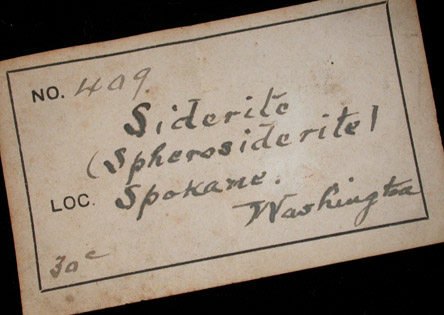 NO. 409.
Siderite
(Spherosiderite)
LOC. Spokane.
Washington
30c